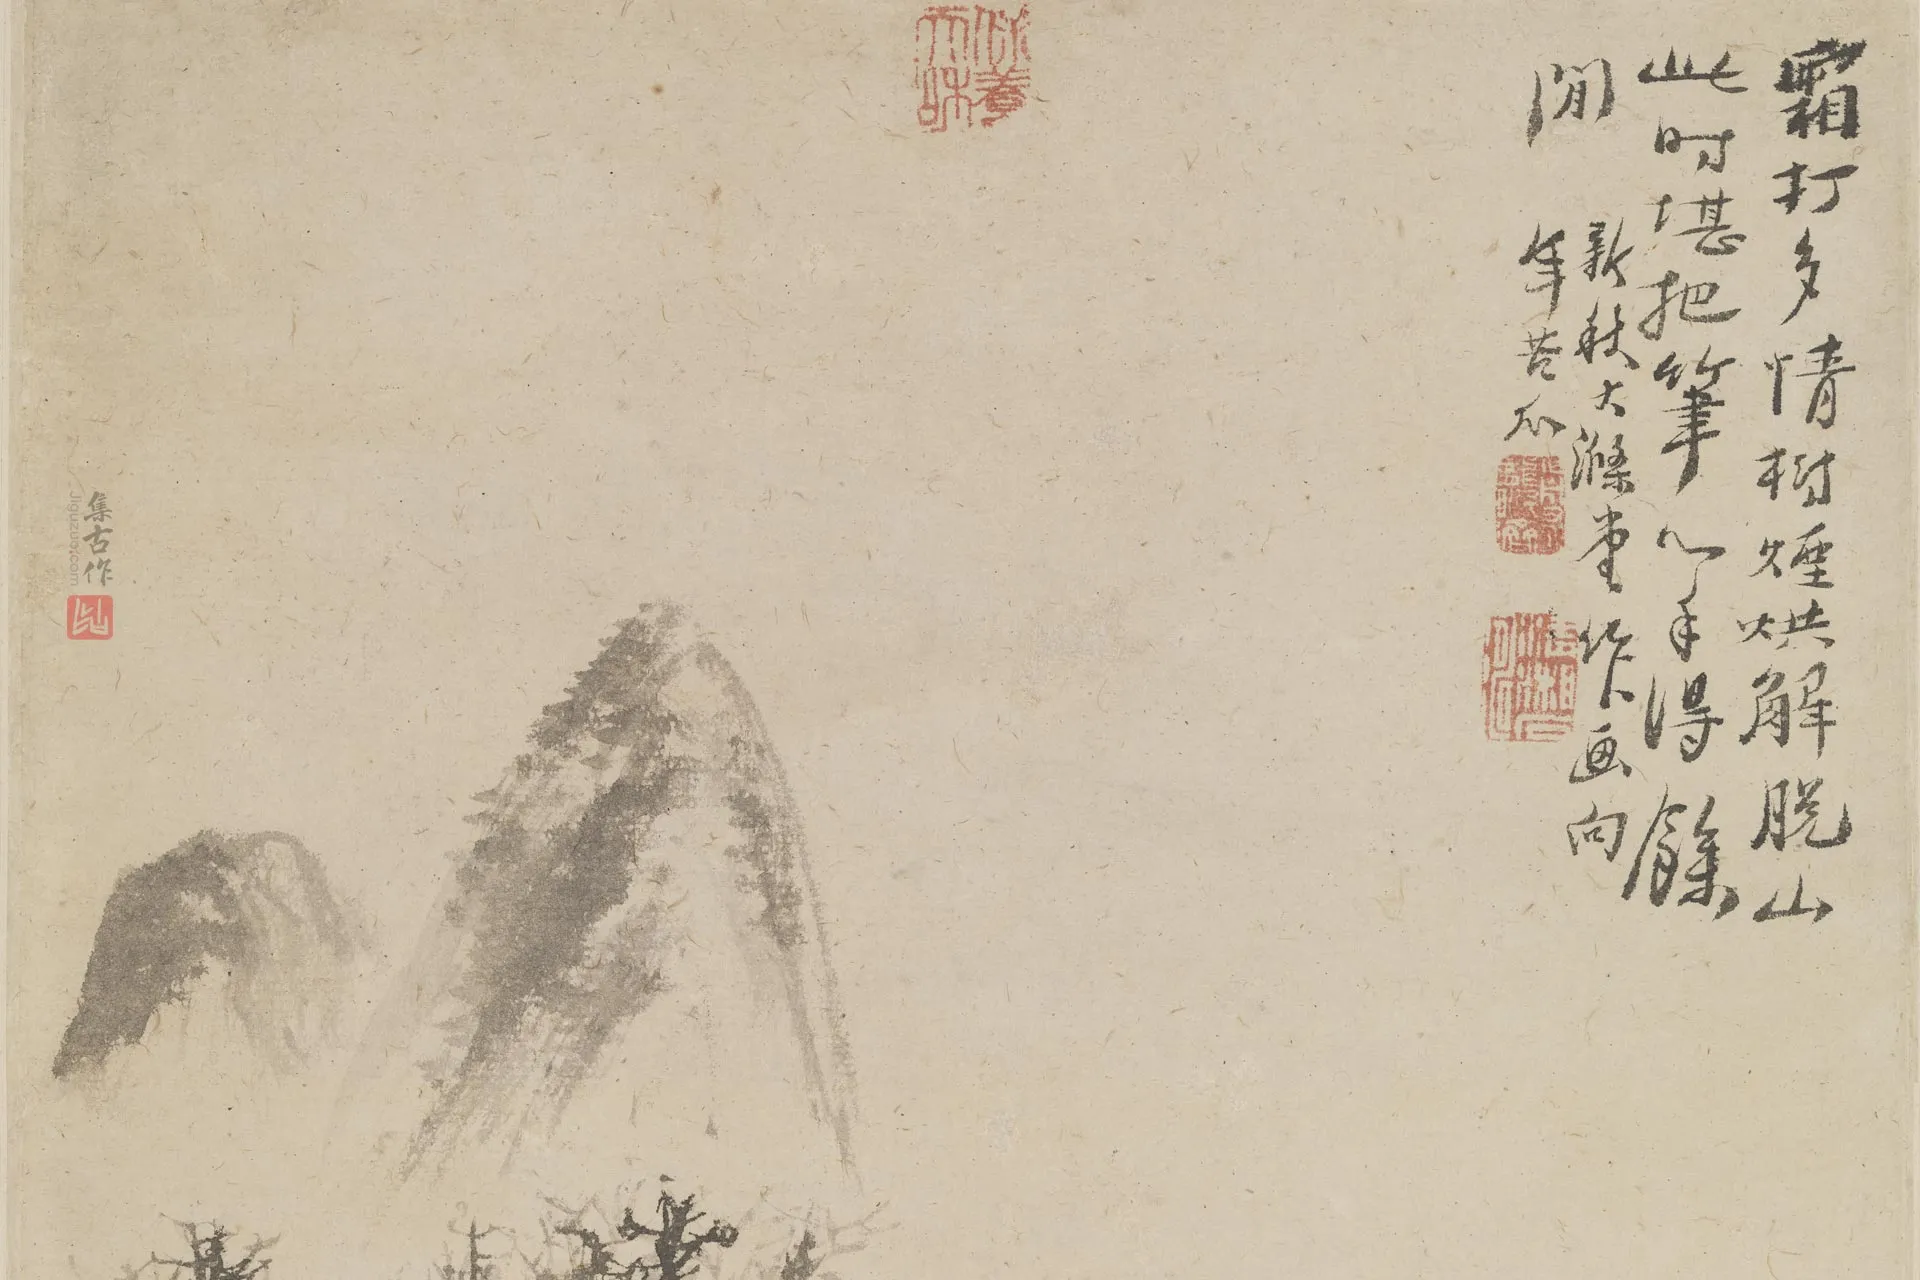 霜打多情樹煙烘解脫山
此时堪把筆心手得餘
閒
新秋大滌堂作画向
年苦瓜
集古作
Jiguzuo.com